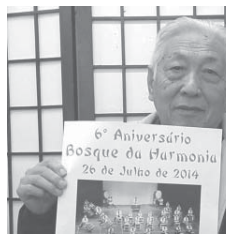 6º Aniversário
Bosque da Harmonia
26 de Julho de 2014